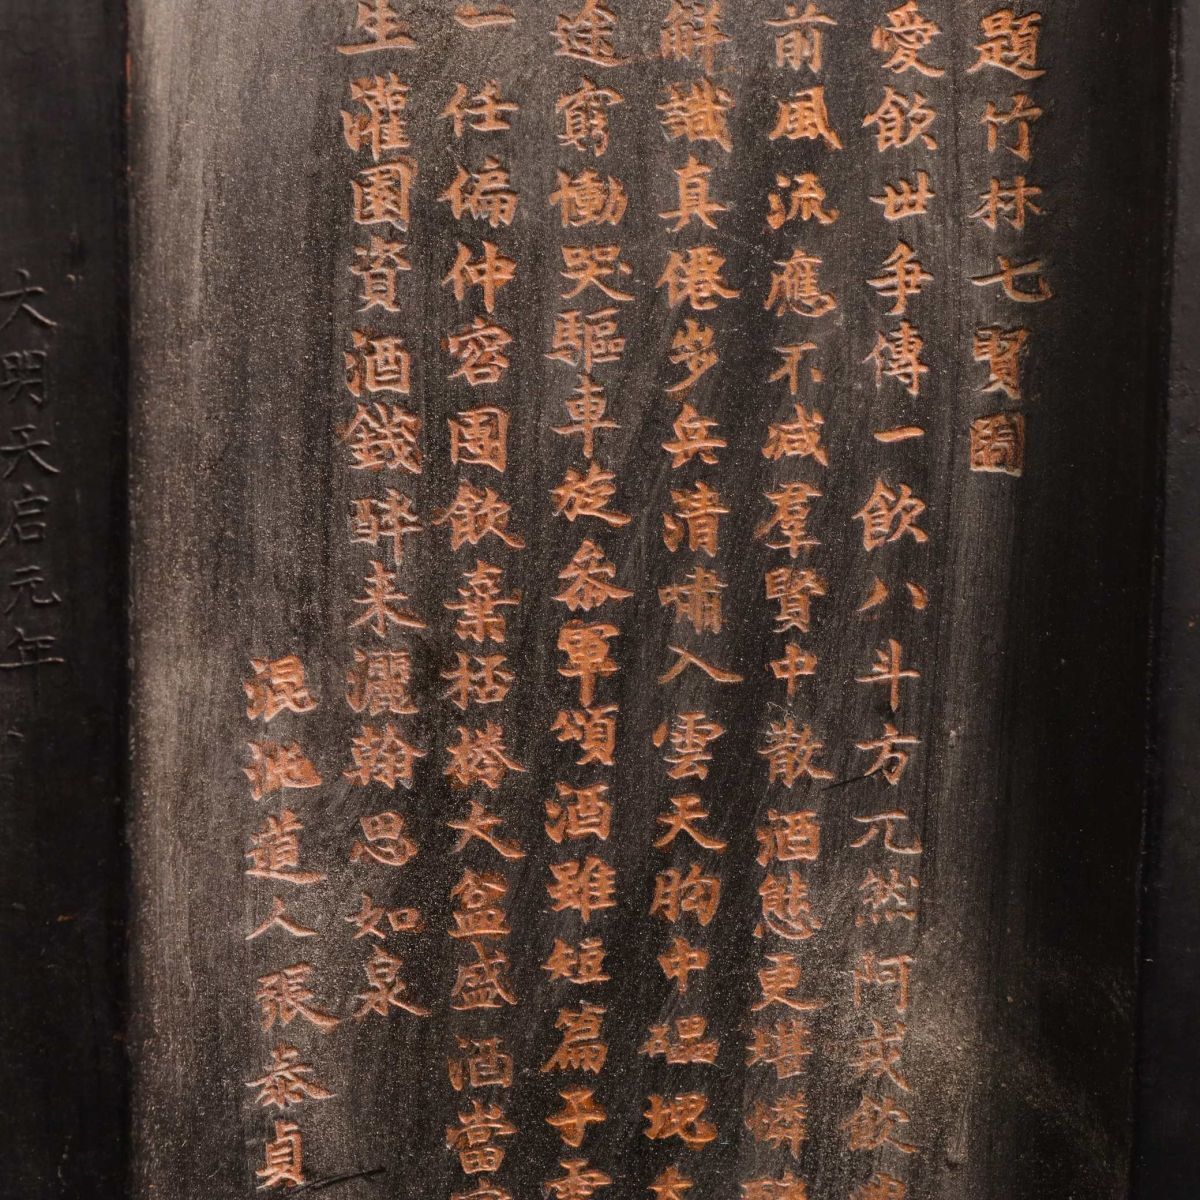 題竹林七賢圖
愛飲世爭傳一飲八斗方兀然阿戎飲
前風流應不減羣賢中散酒態更堪憐
解識真僊步兵清嘯入雲天胸中磊塊
途窮慟哭驅車旋參軍頌酒雖短篇子
一任偏仲容團飲棄杯棬大盆盛酒當
生灌園資酒錢醉来灑翰思如泉
混沌道人張泰貞
大明天启元年